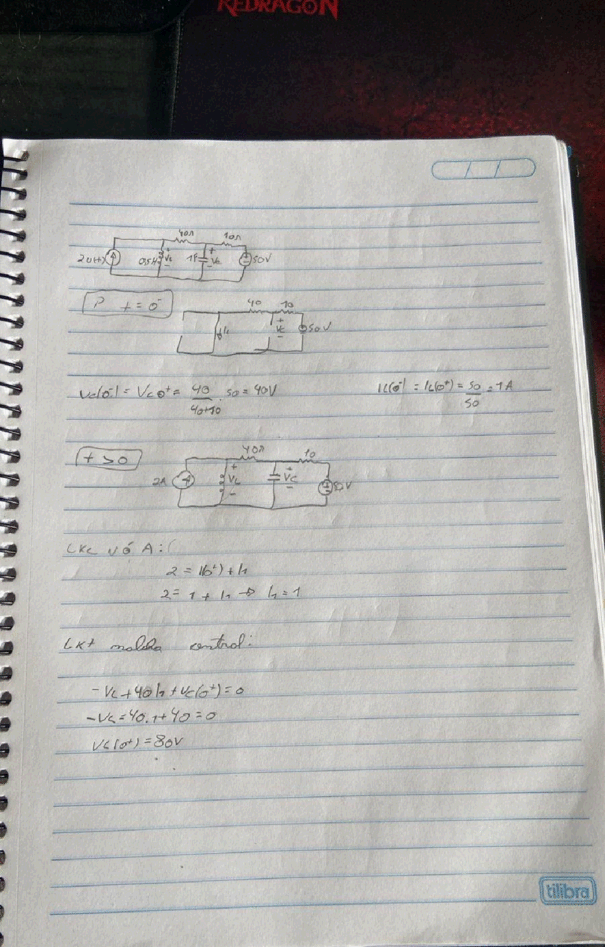 REDRAGON
40Ω 10Ω
2u(t) 0,5H + VL - 1F + Vc - 50V
P t=0⁻
40 10
iL + Vc - 50V
Vc(0⁻) = Vc0⁺ = 40/(40+10) . 50 = 40V
iL(0⁻) = iL(0⁺) = 50/50 = 1A
t > 0
40Ω 10
2A + VL - + Vc - 50V
LKC nó A:
2 = i(0⁺) + i1
2 = 1 + i1 → i1 = 1
LKT malha central:
-VL + 40i1 + Vc(0⁺) = 0
-VL = 40.1 + 40 = 0
VL(0⁺) = 80V
tilibra